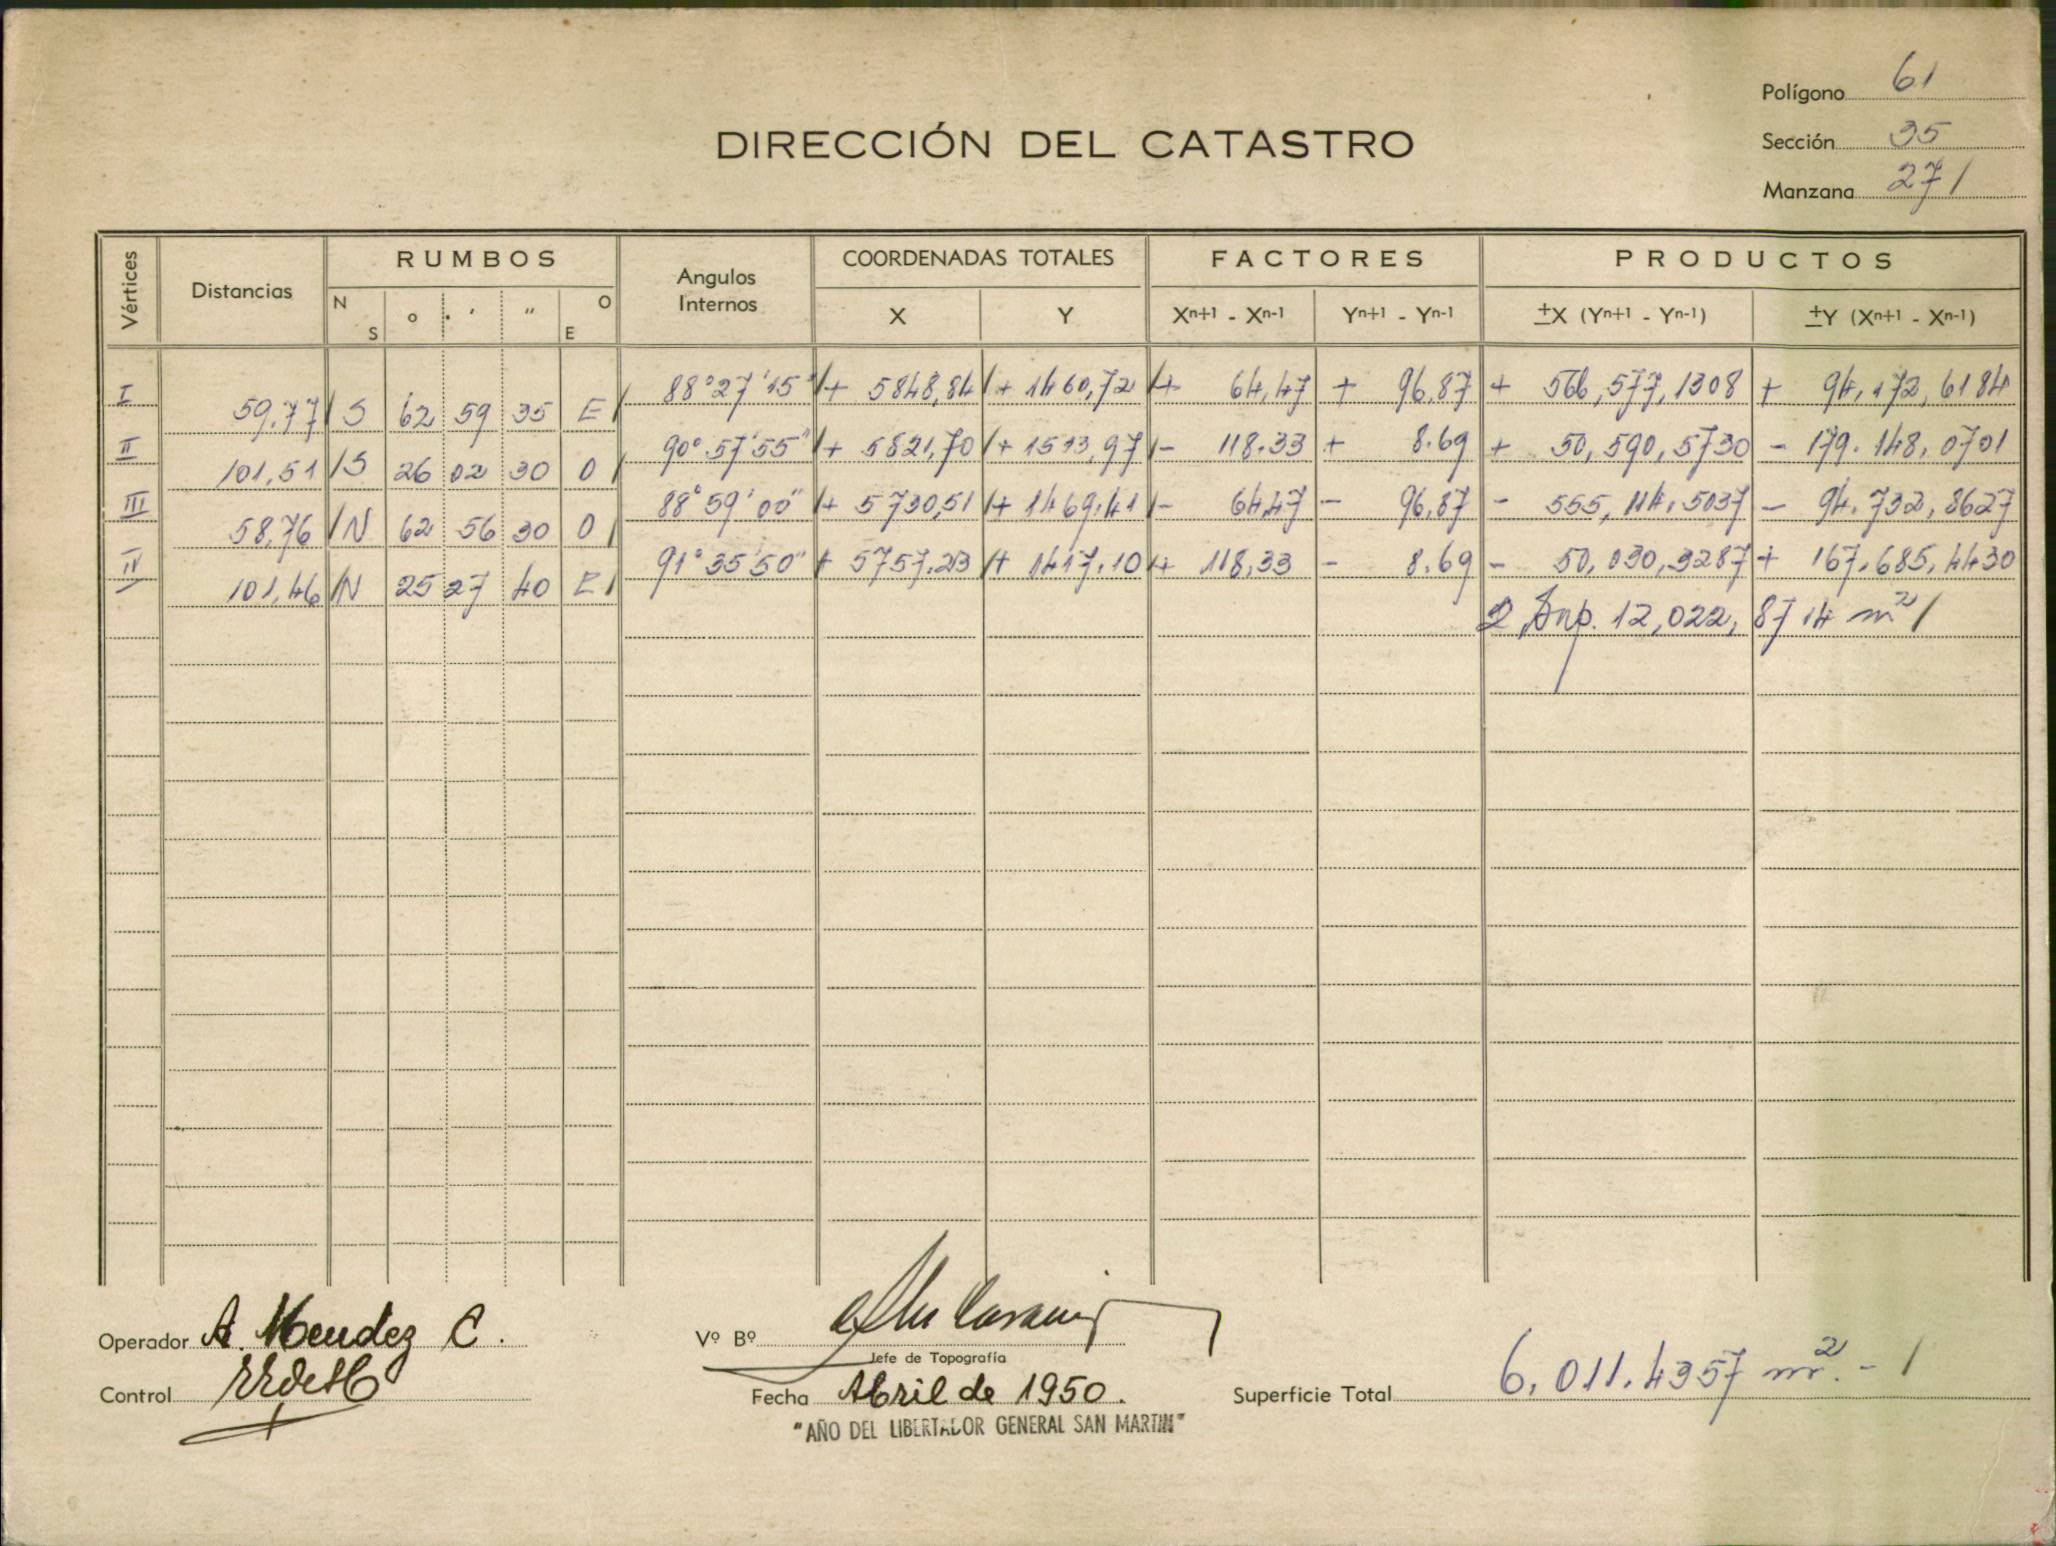 Polígono 61
DIRECCIÓN DEL CATASTRO
Sección 35
Manzana 271
Vértices Distancias RUMBOS Angulos Internos COORDENADAS TOTALES FACTORES PRODUCTOS
N S ° ' " O E X Y Xn+1 - Xn-1 Yn+1 - Yn-1 ±X (Yn+1 - Yn-1) ±Y (Xn+1 - Xn-1)
I 88°27'15" + 5848,84 + 1460,72 + 64,47 + 96,87 + 566,577,1308 + 94,172,6184
59,77 S 62 59 35 E
II 90°57'55" + 5821,70 + 1513,97 - 118.33 + 8.69 + 50,590,5730 - 179.148,0701
101,51 S 26 02 30 O
III 88°59'00" + 5730,51 + 1469,41 - 64,47 - 96,87 - 555,114,5037 - 94.732,8627
58,76 N 62 56 30 O
IV 91°35'50" + 5757,23 + 1417,10 + 118,33 - 8.69 - 50,030,3287 + 167,685,4430
101,46 N 25 27 40 E
2 Sup. 12,022,8714 m² /
Operador A. Mendez C.
Vº Bº
Jefe de Topografía
Control
Fecha Abril de 1950.
Superficie Total 6,011.4357 m².- /
"AÑO DEL LIBERTADOR GENERAL SAN MARTIN"